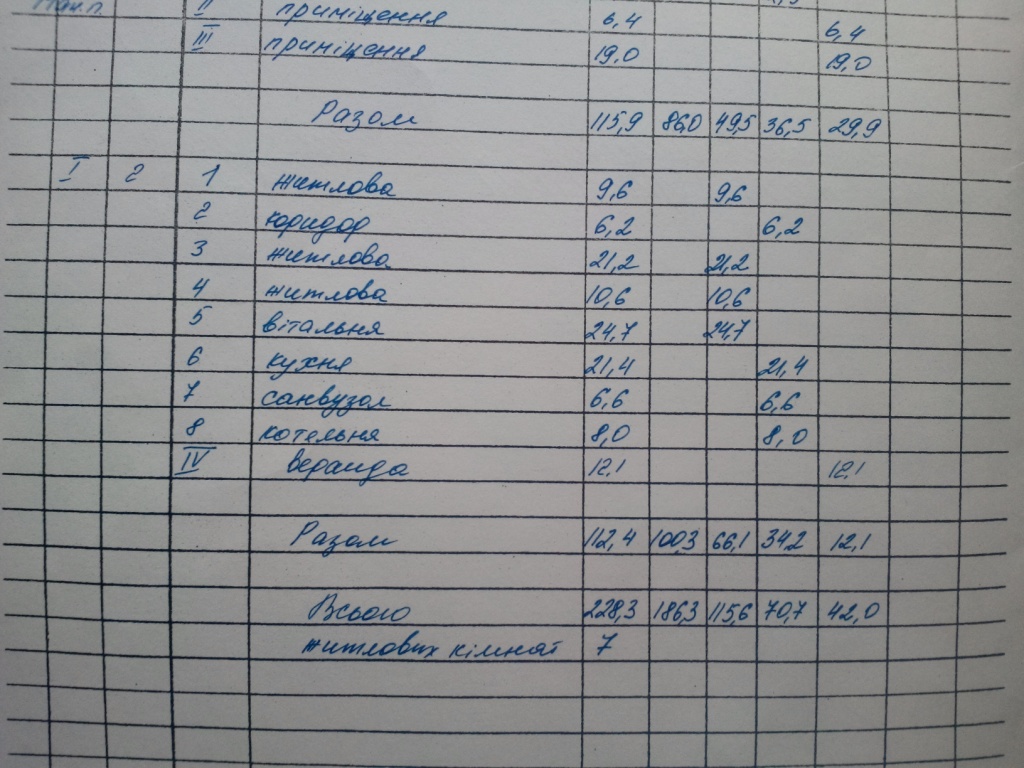 II приміщення 6,4 6,4
III приміщення 19,0 19,0
Разом 115,9 86,0 49,5 36,5 29,9
I 2 1 житлова 9,6 9,6
2 коридор 6,2 6,2
3 житлова 21,2 21,2
4 житлова 10,6 10,6
5 вітальня 24,7 24,7
6 кухня 21,4 21,4
7 санвузол 6,6 6,6
8 котельня 8,0 8,0
IV веранда 12,1 12,1
Разом 112,4 100,3 66,1 34,2 12,1
Всього 228,3 186,3 115,6 70,7 42,0
житлових кімнат 7